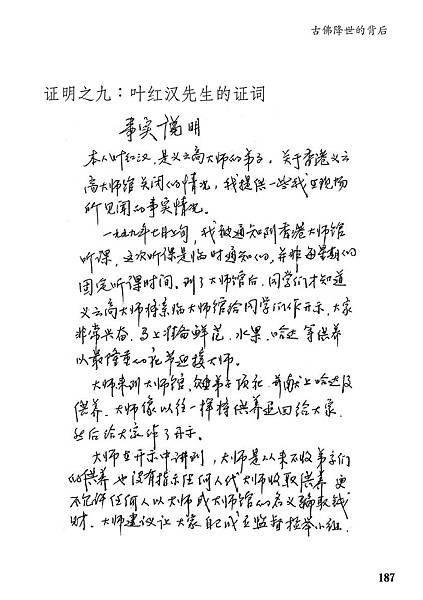 古佛降世的背后
证明之九：叶红汉先生的证词
事实说明
本人叶红汉，是义云高大师的弟子。关于香港义云
高大师馆关闭的情况，我提供一些我在现场
所见闻的事实情况。
一九九九年七月上旬，我被通知到香港大师馆
听课，这次听课是临时通知的，并非每星期的
固定听课时间。到了大师馆后，同学们才知道
义云高大师将亲临大师馆给同学们作开示，大家
非常兴奋，马上准备鲜花、水果、哈达等供养
以最隆重的礼节迎接大师。
大师来到大师馆，众弟子顶礼，并献上哈达及
供养，大师像以往一样将供养退回给大家，
然后给大家作了开示。
大师在开示中讲到，大师是从来不收弟子们
的供养，也没有指示任何人代大师收取供养，更
不允许任何人以大师或大师馆的名义骗取钱
财。大师建议让大家自己成立监督检举小组，
187